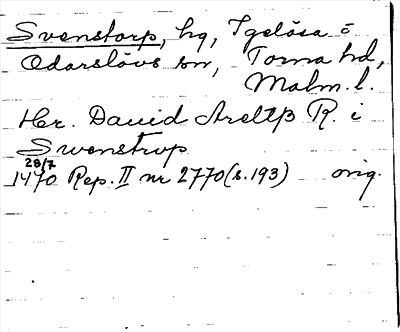 Svenstorp, hg, Igelösa o
Odarslövs sn, Torna hd,
Malm. l.
Her. Dauid Areltß R. i
Swenstrup
28/7
1470 Rep. II nr 2770 (s. 193) orig.